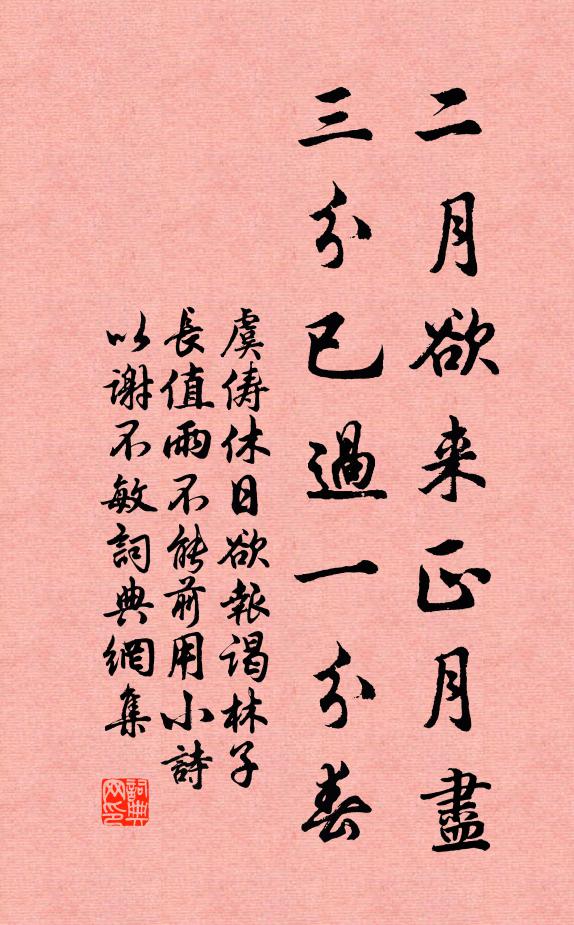 二月欲来正月盡
三分已過一分春
虞儔休日欲報謁林子
長值雨不能前用小詩
以謝不敏詞典網集
詞典
网印